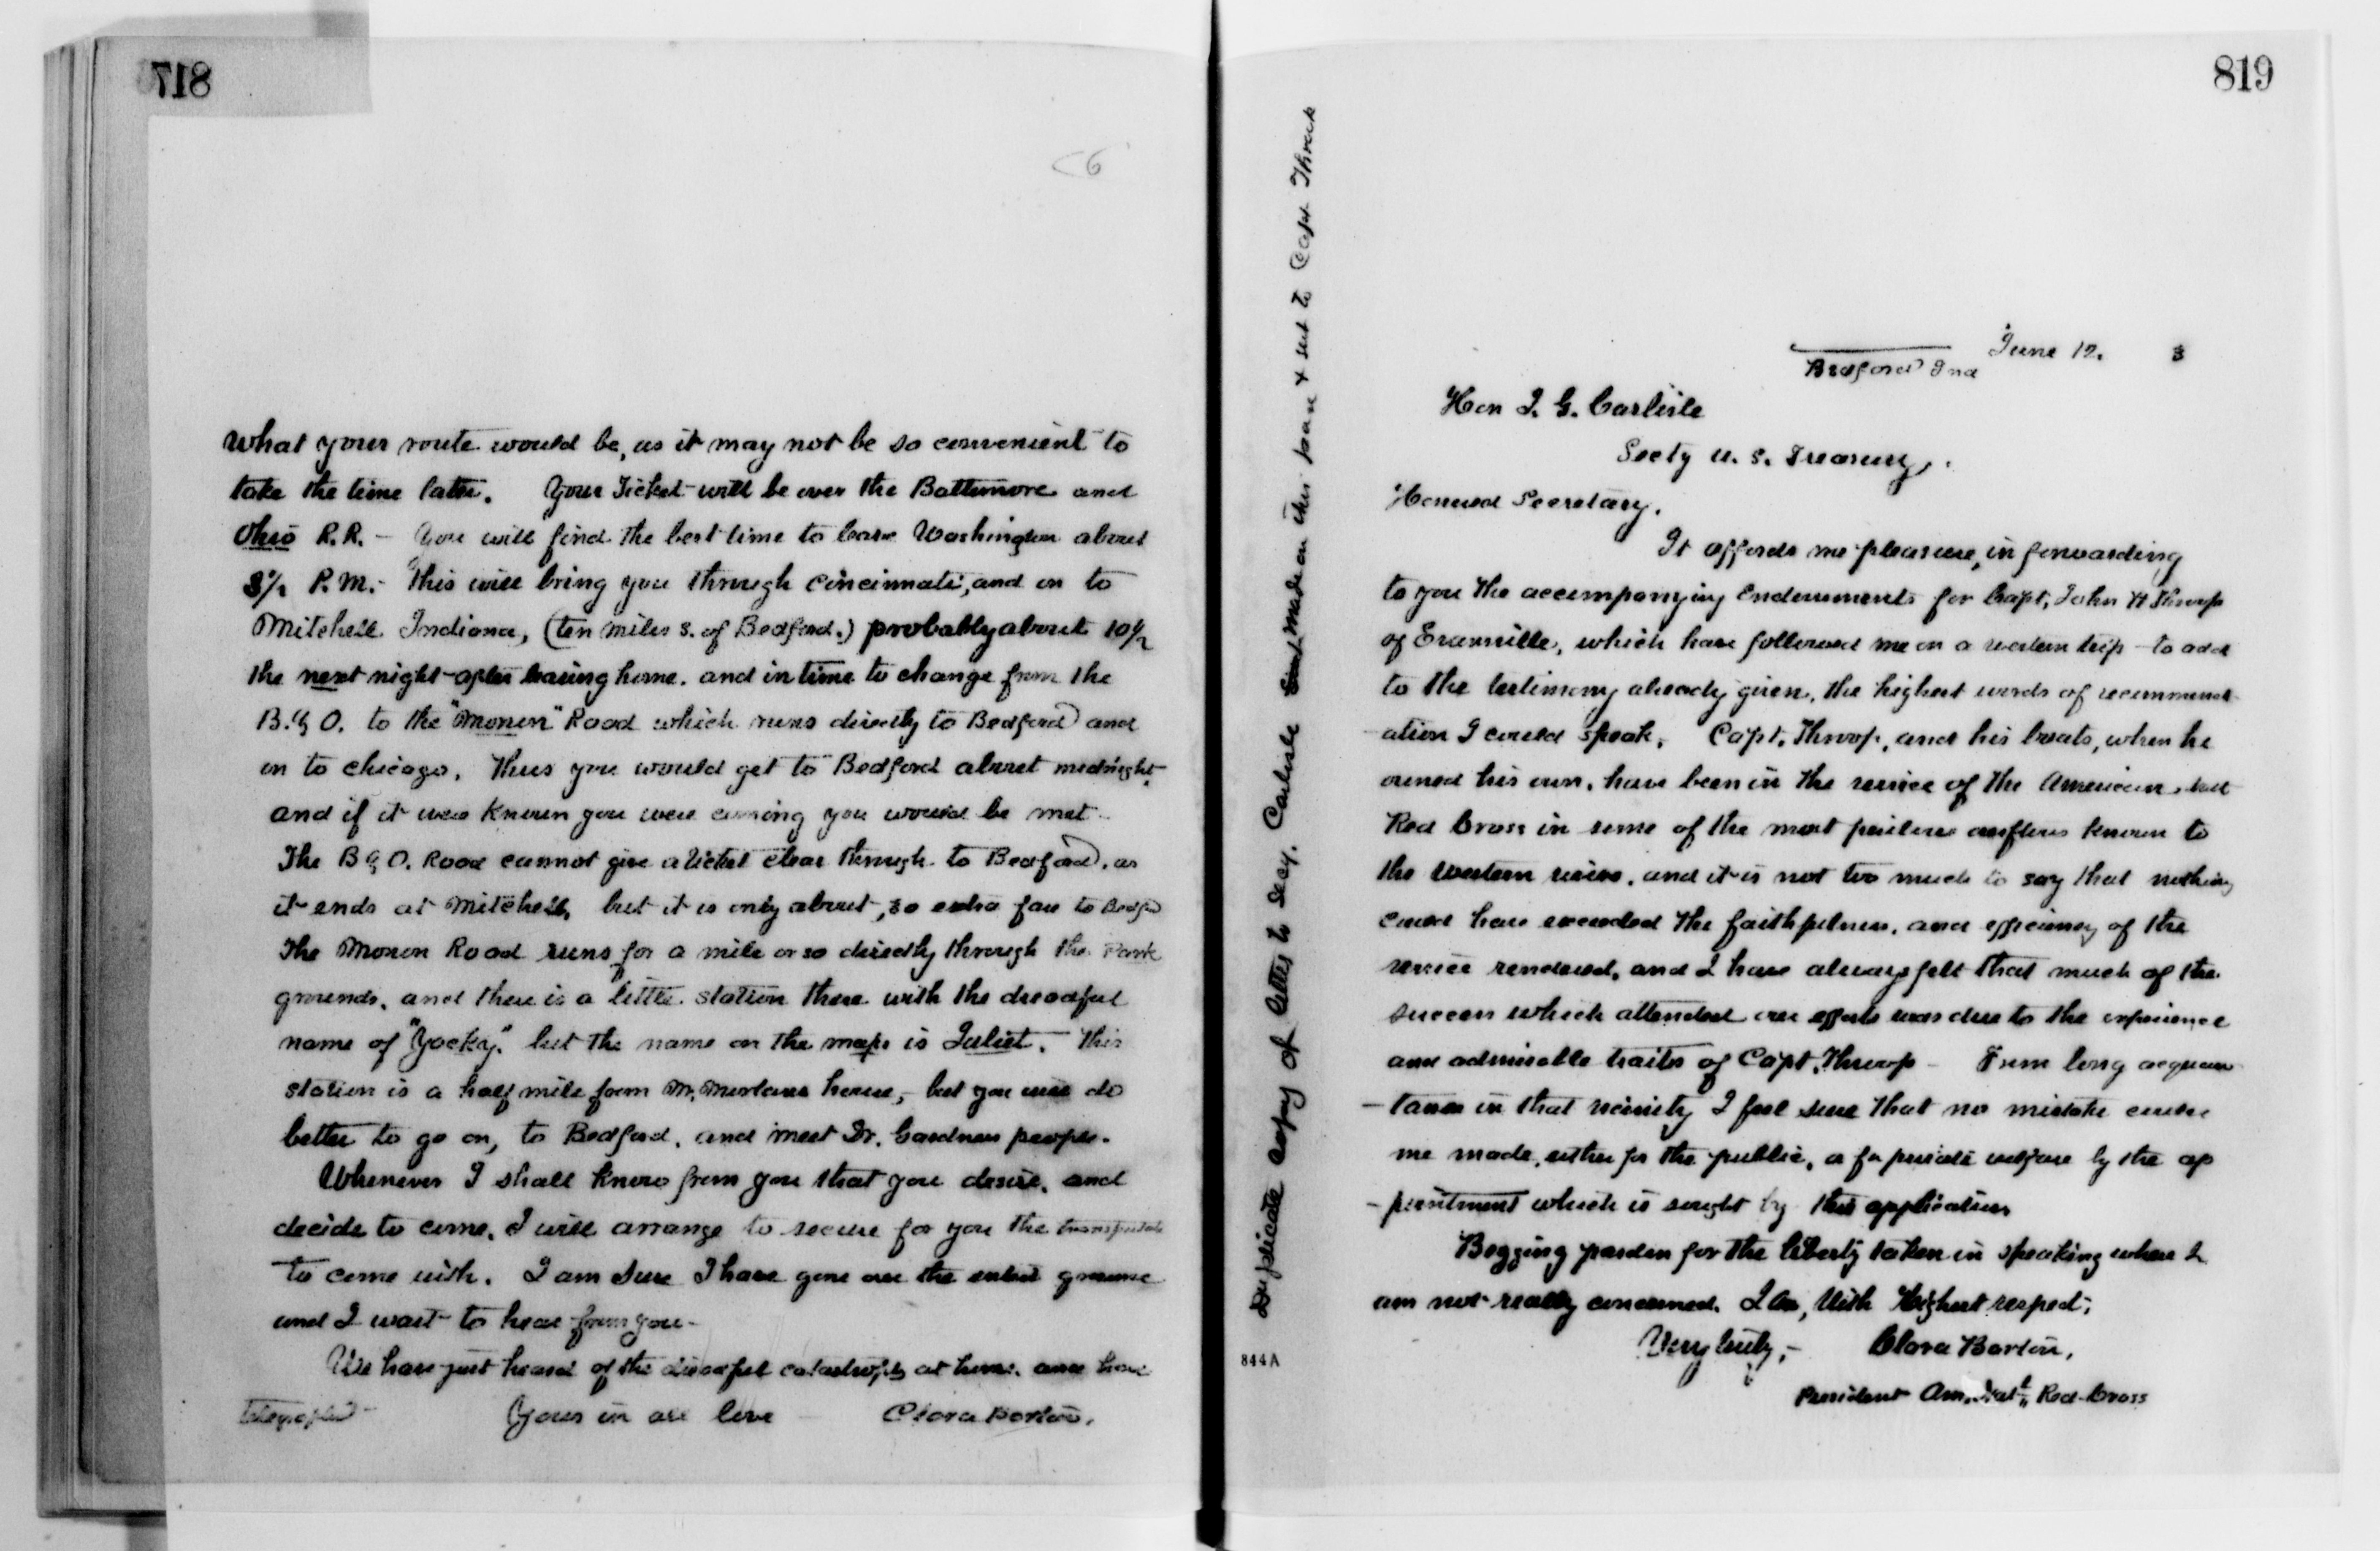 817
C 6
what your route would be, as it may not be so convenient to
take the time later. Your Ticket will be over the Baltimore and
Ohio R.R. – You will find the best time to leave Washington about
3½ P.M. – This will bring you through Cincinnati, and on to
Mitchell Indiana, (ten miles S. of Bedford.) probably about 10½
the next night after leaving home. and in time to change from the
B. & O. to the "Monon" Road which runs directly to Bedford and
on to Chicago. Thus you would get to Bedford about midnight,
and if it were known you were coming you would be met.
The B & O. Road cannot give a ticket clear through to Bedford, as
it ends at Mitchell, but it is only about extra fare to Bedfd
The Monon Road runs for a mile or so directly through the Park
grounds, and there is a little station there with the dreadful
name of "Yocky." but the name on the maps is Juliet. This
station is a half mile from Mr. Morlans house, – but you will do
better to go on, to Bedford, and meet Dr. Gardners people.
Whenever I shall know from you that you desire, and
decide to come, I will arrange to secure for you the
to come with. I am sure I have gone over the entire ground
and I wait to hear from you –
We have just heard of the dreadful catastrophe at home. and have
telegraphed – Yours in all love Clara Barton.
Duplicate copy of letter to Secy. Carlisle made on this & sent to Capt Throop
844A
819
June 12. 3
Bedford Ind
Hon J. G. Carlisle
Secty U. S. Treasury,
Honored Secretary.
It affords me pleasure, in forwarding
to you the accompanying endorsements for Capt. John H Throop
of Evansville, which have followed me on a western trip – to add
to the testimony already given, the highest words of recommend
-ation I could speak. Capt. Throop, and his boats, when he
owned his own, have been in the service of the American Natl
Red Cross in some of the most perilous known to
the Western rivers, and it is not too much to say that nothing
could have exceeded the faithfulness, and efficiency of the
service rendered, and I have always felt that much of the
success which attended our efforts was due to the experience
and admirable traits of Capt. Throop – From long acquain
-tance in that vicinity I feel sure that no mistake could
me made, either for the public, or for private welfare by the ap
-pointment which is sought by this application
Begging pardon for the liberty taken in speaking where I
am not really concerned. I am, With Highest respect,
Very truly, – Clara Barton,
President Am. Natl Red Cross